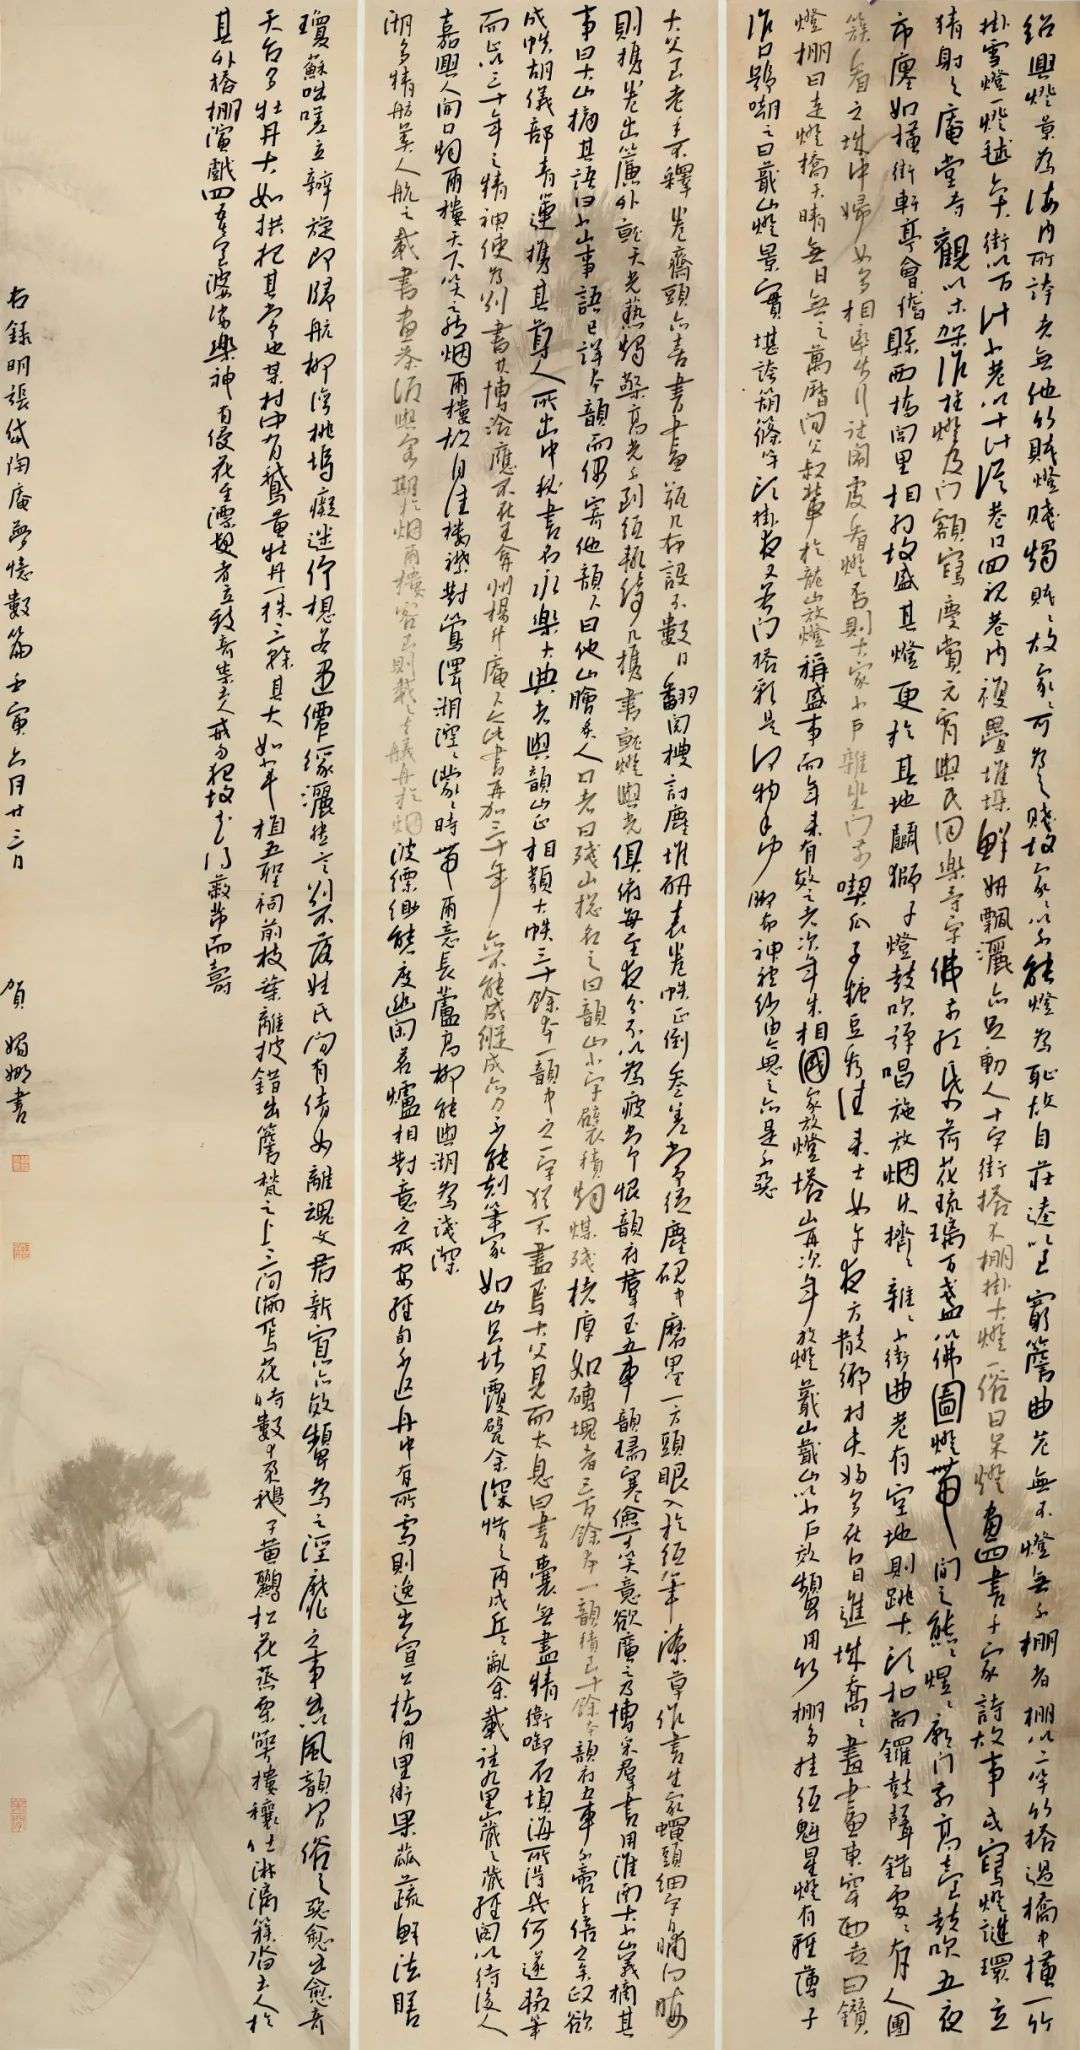 紹興燈景為海內所誇者無他竹賤燈賤燭賤賤故家家可為之賤故家家以不能燈為恥故自莊逵以至窮簷曲巷無不燈無不棚者棚以二竿竹搭過橋中橫一竹
掛雪燈一燈毬六大街以百計小巷以十計從巷口回視巷內複疊堆垛鮮妍飄灑亦足動人十字街搭木棚掛大燈一俗曰呆燈畫四書千家詩故事或寫燈謎環立
猜射之庵堂寺觀以木架作柱燈及門額寫慶賞元宵與民同樂等字佛前紅紙荷花琉璃百盞以佛圖燈帶間之熊熊煜煜廟門前高臺鼓吹五夜
市廛如橫街軒亭會稽縣西橋閭里相約故盛其燈更於其地鬭獅子燈鼓吹彈唱施放烟火擠擠雜雜小街曲巷有空地則跳大頭和尚鑼鼓聲錯處處有人團
簇看之城中婦女多相率步行往鬧處看燈否則大家小戶雜坐門前喫瓜子糖豆看往來士女午夜方散鄉村夫婦多在白日進城喬喬畫畫東穿西走曰鑽
燈棚曰走燈橋天晴無日無之萬曆間父叔輩於龍山放燈稱盛事而年來有效之者次年朱相國家放燈塔山再次年放燈蕺山蕺山以小戶效顰用竹棚多挂紙魁星燈有輕薄子
作口號嘲之曰蕺山燈景實堪誇箶篠竿頭掛夜叉若問搭彩是何物手巾脚布神袍紗由今思之亦是不惡
大父至老手不釋卷齋頭亦喜書畫瓶几布設不數日翻閱搜討塵堆研表卷帙正倒參差常從塵硯中磨墨一方頭眼入於紙筆潦草作書生家蠅頭細字日晡向晦
則攜卷出簾外就天光爇燭檠高光不到紙輒倚几攜書就燈與光俱俯每至夜分不以為疲常恨韻府羣玉五車韻瑞寒儉可笑意欲廣之乃博采羣書用淮南大小山義摘其
事曰大山摘其語曰小山事語已詳本韻而偶寄他韻下曰他山膾炙人口者曰殘山總名之曰韻山小字襞積烟煤殘楮厚如磚塊者三百餘本一韻積至十餘本韻府五車不啻千倍之矣正欲
成帙胡儀部青蓮攜其尊人所出中秘書名永樂大典者與韻山正相類大帙三十餘本一韻中之一字猶不盡焉大父見而太息曰書囊無盡精衛啣石填海所得幾何遂輟筆
而止以三十年之精神使為別書其博洽應不在王弇州楊升庵下今此書再加三十年亦不能成縱成亦力不能刻筆冢如山只堪覆瓿余深惜之丙戌兵亂余載往九里山藏之藏經閣以待後人
嘉興人開口烟雨樓天下笑之然烟雨樓故自佳樓襟對鶯澤湖涳涳濛濛時帶雨意長蘆高柳能與湖為淺深
湖多精舫美人航之載書畫茶酒與客期於烟雨樓客至則載之去艤舟於烟波縹緲態度幽閒茗爐相對意之所安經旬不返舟中有所需則逸出宣公橋甪里街果蓏蔬鮮法膳
瓊蘇咄嗟立辦旋即歸航柳灣桃塢癡迷佇想若遇僊緣灑然言別不落姓氏間有倩女離魂文君新寡亦效顰為之淫靡之事出以風韻習俗之惡愈出愈奇
天台多牡丹大如拱把其常也某村中有鵝黃牡丹一株三榦其大如小斗植五聖祠前枝葉離披錯出簷甃之上三間滿焉花時數十朵鵝子黃鸝松花蒸栗萼樓穰吐淋漓簇沓土人於
其外搭棚演戲四五臺婆娑樂神有侵花至漂髮者立致奇祟土人戒勿犯故花得蔽芾而壽
右錄明張岱陶庵夢憶數篇壬寅六月廿三日 賀